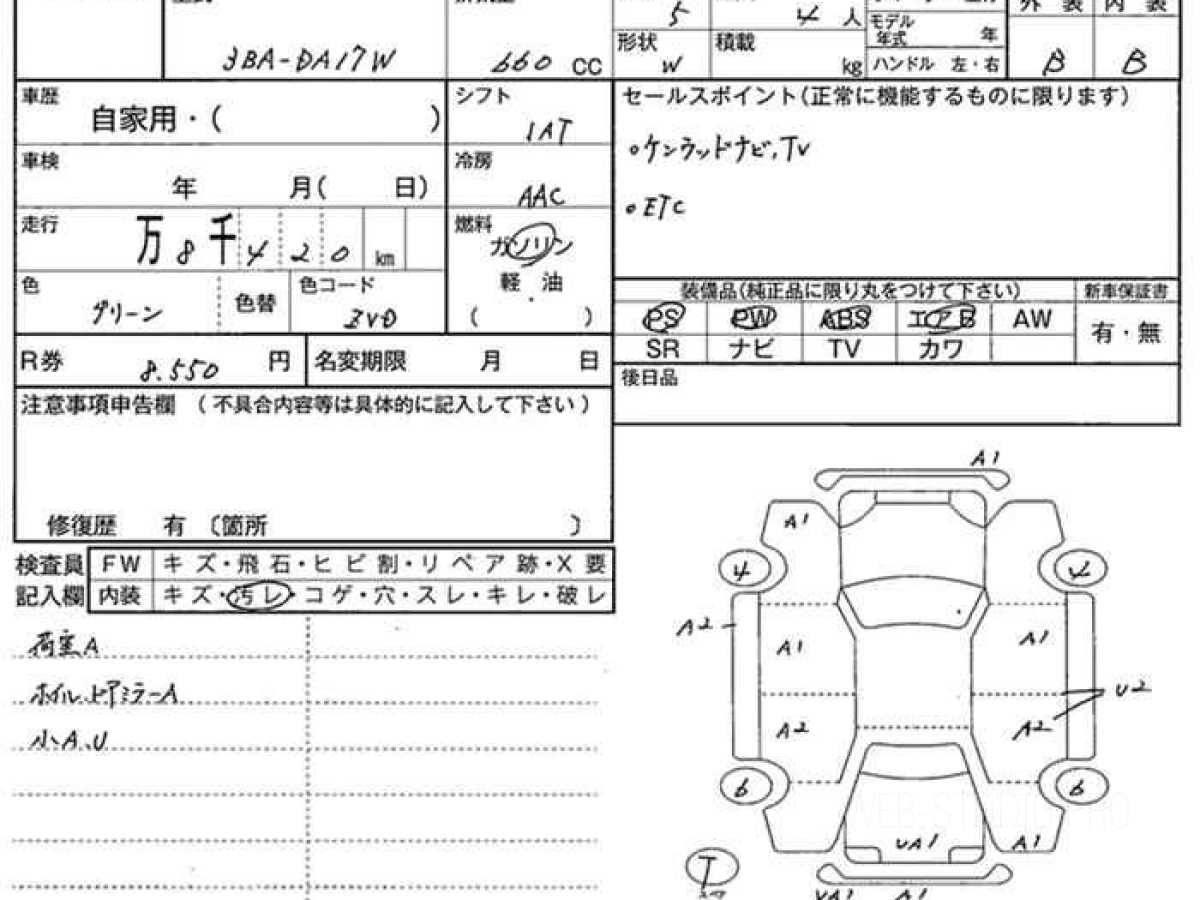 5
4 人
モデル
年式 年
外 装 内 装
3BA-DA17W
660 CC
形状
W
積載
kg
ハンドル 左・右
B
B
車歴
自家用・( )
シフト
IAT
セールスポイント(正常に機能するものに限ります)
・ケンウッドナビ,TV
・ETC
車検
年 月( 日)
冷房
AAC
走行
万8千420 km
燃料
ガソリン
軽 油
( )
色
グリーン
色替
色コード
ZVD
装備品(純正品に限り丸をつけて下さい)
新車保証書
PS PW ABS エアB AW
有・無
SR ナビ TV カワ
R券
8.550 円
名変期限 月 日
後日品
注意事項申告欄 (不具合内容等は具体的に記入して下さい)
修復歴 有 〔箇所 〕
検査員
記入欄
FW キズ・飛石・ヒビ割・リペア跡・X要
内装 キズ・汚レ・コゲ・穴・スレ・キレ・破レ
荷室A
ホイル、ドアミラーA
小A、U
A1
A1
4
4
A2
A1
A1
U2
A2
A2
6
6
UA1
A1
T
UA1 A1
WEB-STUDIO PRO